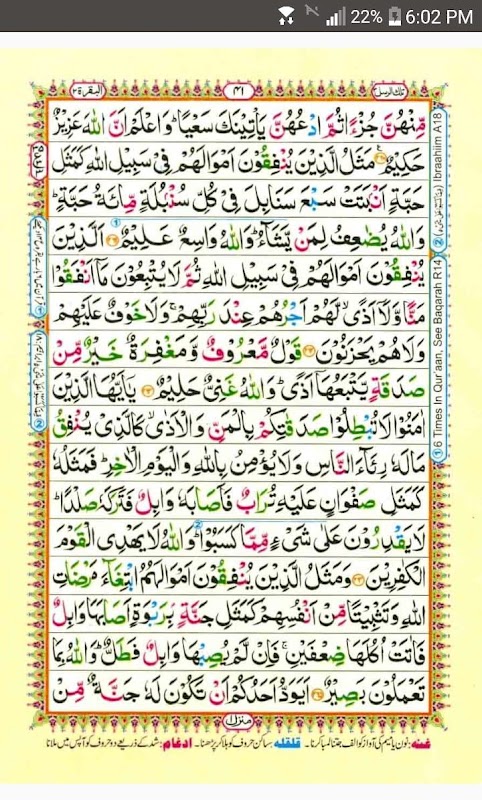 22% 6:02 PM
تلك الرسل ٣
٤١
البقرة ٢
مِّنْهُنَّ جُزْءًا ثُمَّ ادْعُهُنَّ يَأْتِينَكَ سَعْيًا ؕ وَاعْلَمْ اَنَّ اللّٰهَ عَزِيْزٌ
حَكِيْمٌ ﴿٢٦٠﴾ مَثَلُ الَّذِيْنَ يُنْفِقُوْنَ اَمْوَالَهُمْ فِيْ سَبِيْلِ اللّٰهِ كَمَثَلِ
حَبَّةٍ اَنْۢبَتَتْ سَبْعَ سَنَابِلَ فِيْ كُلِّ سُنْۢبُلَةٍ مِّائَةُ حَبَّةٍ ؕ
وَاللّٰهُ يُضٰعِفُ لِمَنْ يَّشَآءُ ؕ وَاللّٰهُ وَاسِعٌ عَلِيْمٌ ﴿٢٦١﴾ اَلَّذِيْنَ
يُنْفِقُوْنَ اَمْوَالَهُمْ فِيْ سَبِيْلِ اللّٰهِ ثُمَّ لَا يُتْبِعُوْنَ مَاۤ اَنْفَقُوْا
مَنًّا وَّلَاۤ اَذًى ۙ لَّهُمْ اَجْرُهُمْ عِنْدَ رَبِّهِمْ ۚ وَلَا خَوْفٌ عَلَيْهِمْ
وَلَا هُمْ يَحْزَنُوْنَ ﴿٢٦٢﴾ قَوْلٌ مَّعْرُوْفٌ وَّمَغْفِرَةٌ خَيْرٌ مِّنْ
صَدَقَةٍ يَّتْبَعُهَاۤ اَذًى ؕ وَاللّٰهُ غَنِيٌّ حَلِيْمٌ ﴿٢٦٣﴾ يٰۤاَيُّهَا الَّذِيْنَ
اٰمَنُوْا لَا تُبْطِلُوْا صَدَقٰتِكُمْ بِالْمَنِّ وَالْاَذٰى ۙ كَالَّذِيْ يُنْفِقُ
مَالَهٗ رِئَآءَ النَّاسِ وَلَا يُؤْمِنُ بِاللّٰهِ وَالْيَوْمِ الْاٰخِرِ ؕ فَمَثَلُهٗ
كَمَثَلِ صَفْوَانٍ عَلَيْهِ تُرَابٌ فَاَصَابَهٗ وَابِلٌ فَتَرَكَهٗ صَلْدًا ؕ
لَا يَقْدِرُوْنَ عَلٰى شَيْءٍ مِّمَّا كَسَبُوْا ؕ وَاللّٰهُ لَا يَهْدِي الْقَوْمَ
الْكٰفِرِيْنَ ﴿٢٦٤﴾ وَمَثَلُ الَّذِيْنَ يُنْفِقُوْنَ اَمْوَالَهُمُ ابْتِغَآءَ مَرْضَاتِ
اللّٰهِ وَتَثْبِيْتًا مِّنْ اَنْفُسِهِمْ كَمَثَلِ جَنَّةٍۭ بِرَبْوَةٍ اَصَابَهَا وَابِلٌ
فَاٰتَتْ اُكُلَهَا ضِعْفَيْنِ ۚ فَاِنْ لَّمْ يُصِبْهَا وَابِلٌ فَطَلٌّ ؕ وَاللّٰهُ بِمَا
تَعْمَلُوْنَ بَصِيْرٌ ﴿٢٦٥﴾ اَيَوَدُّ اَحَدُكُمْ اَنْ تَكُوْنَ لَهٗ جَنَّةٌ مِّنْ
② Ibraahiim A18
① 6 Times In Qur'aan, See Baqarah R14
منزل ١
غنه: نون یا میم کی آواز کو الف جتنا لمبا کرنا۔ قلقله: ساکن حروف کو ہلا کر پڑھنا۔ ادغام: شد کے ذریعے دو حروف کو آپس میں ملانا